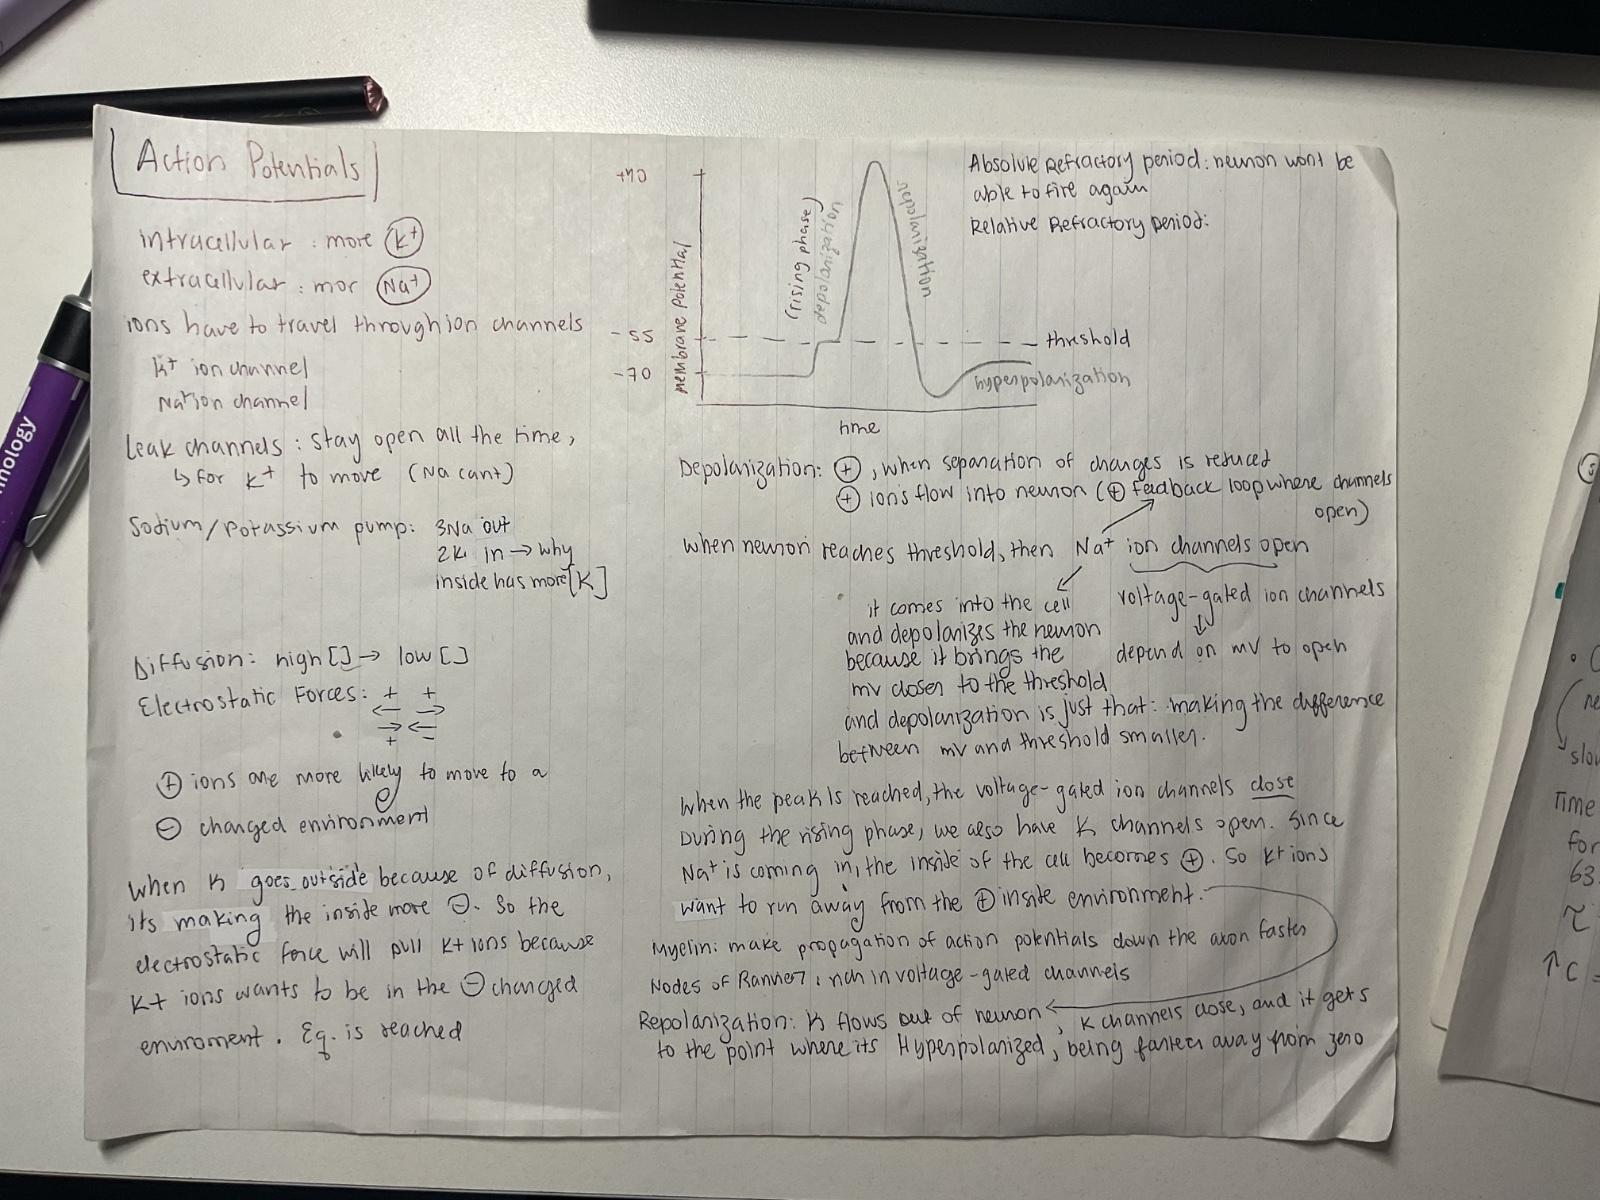 Action Potentials
intracellular : more K+
extracellular : mor Na+
ions have to travel through ion channels
K+ ion channel
Na+ ion channel
Leak channels : stay open all the time,
↳ for K+ to move (Na cant)
Sodium/Potassium pump: 3Na out
2K in → why
inside has more [K]
Diffusion: high [] → low []
Electrostatic Forces: + +
← →
→ ←
+ −
⊕ ions are more likely to move to a
⊖ charged environment
When K goes outside because of diffusion,
its making the inside more ⊖. So the
electrostatic force will pull K+ ions because
K+ ions wants to be in the ⊖ charged
enviroment. Eq. is reached
+40
-55
-70
membrane potential
(rising phase)
depolarization
repolarization
threshold
hyperpolarization
time
Absolute Refractory period: neuron wont be
able to fire again
Relative Refractory period:
Depolarization: ⊕, when separation of charges is reduced
⊕ ion's flow into neuron (⊕ feedback loop where channels
open)
when neuron reaches threshold, then Na+ ion channels open
it comes into the cell
and depolarizes the neuron
because it brings the
mv closer to the threshold
voltage-gated ion channels
↓
depend on mv to open
and depolarization is just that: making the difference
between mv and threshold smaller.
When the peak is reached, the voltage-gated ion channels close
During the rising phase, we also have K channels open. Since
Na+ is coming in, the inside of the cell becomes ⊕. So K+ ions
want to run away from the ⊕ inside environment.
Myelin: make propagation of action potentials down the axon faster
Nodes of Ranvier: rich in voltage-gated channels
Repolarization: K flows out of neuron, K channels close, and it gets
to the point where its Hyperpolarized, being farther away from zero
nology
slo
Time
for
63.
τ
↑C =